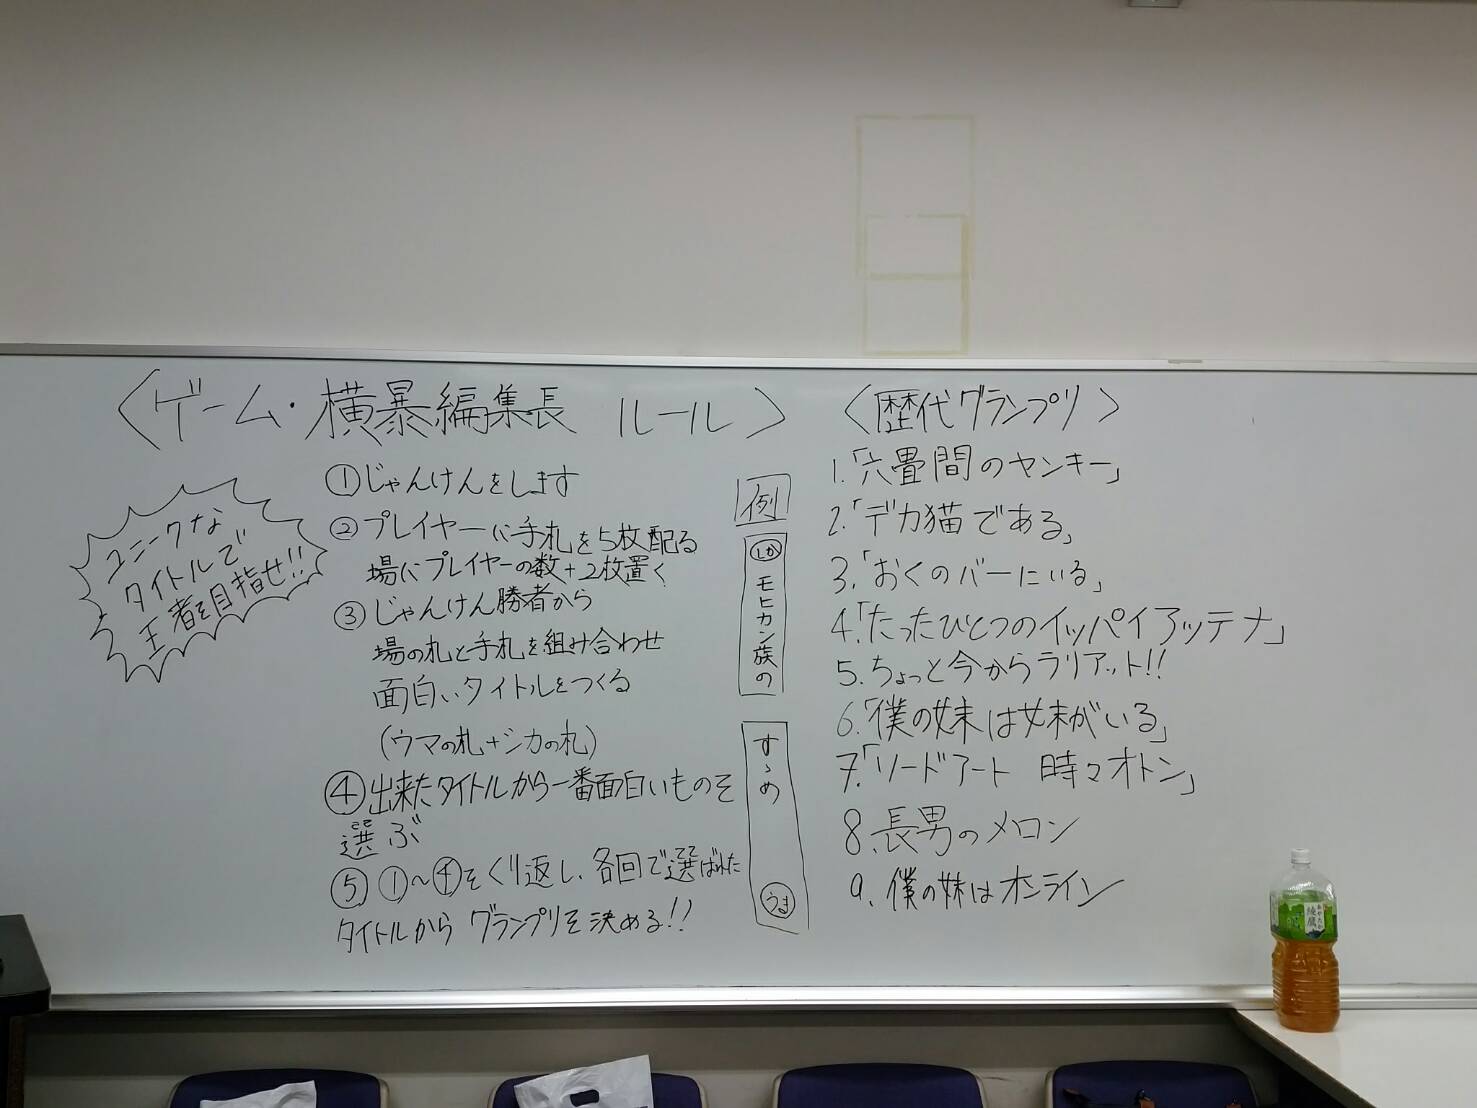 〈ゲーム・横暴編集長 ルール〉
ユニークな
タイトルで
王者を目指せ!!
①じゃんけんをします
②プレイヤーに手札を5枚配る
場にプレイヤーの数+2枚置く
③じゃんけん勝者から
場の札と手札を組み合わせ
面白いタイトルをつくる
(ウマの札+シカの札)
④出来たタイトルから一番面白いものを
選ぶ
⑤①~④をくり返し、各回で選ばれた
タイトルからグランプリを決める!!
例
しか
モヒカン族の
すゝめ
うま
〈歴代グランプリ〉
1.「六畳間のヤンキー」
2.「デカ猫である」
3.「おくのバーにいる」
4.「たったひとつのイッパイアッテナ」
5.ちょっと今からラリアット!!
6.「僕の妹は妹がいる」
7.「ソードアート 時々オトン」
8.長男のメロン
9.僕の妹はオンライン
綾鷹